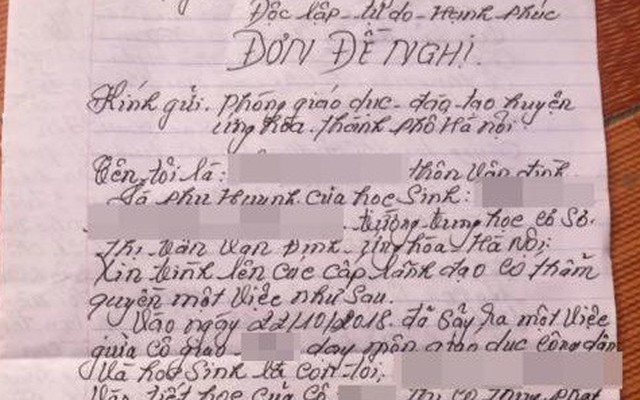 Độc lập - tự do - Hạnh phúc
ĐƠN ĐỀ NGHỊ
Kính gửi. Phòng giáo dục - đào tạo huyện
ứng hòa. thành phố Hà nội
Tên tôi là: thôn Vân đình
Là phụ Huynh của học sinh:
trường trung học cơ sở.
Thị trấn Vân Đình ứng hòa Hà Nội.
Xin trình lên các cấp lãnh đạo có thẩm
quyền một việc như sau.
Vào ngày 22/10/2018. đã sảy ra một việc
giữa cô giáo dạy môn giáo dục công dân
Và học sinh là con tôi.
tiết học của cô thì cô